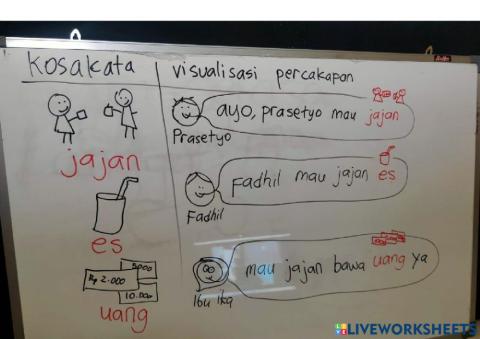 kosakata
visualisasi percakapan
ayo, prasetyo mau jajan
Prasetyo
jajan
Fadhil mau jajan es
Fadhil
es
5000
Rp 2.000
10.000
uang
mau jajan bawa uang ya
Ibu Ika
LIVEWORKSHEETS